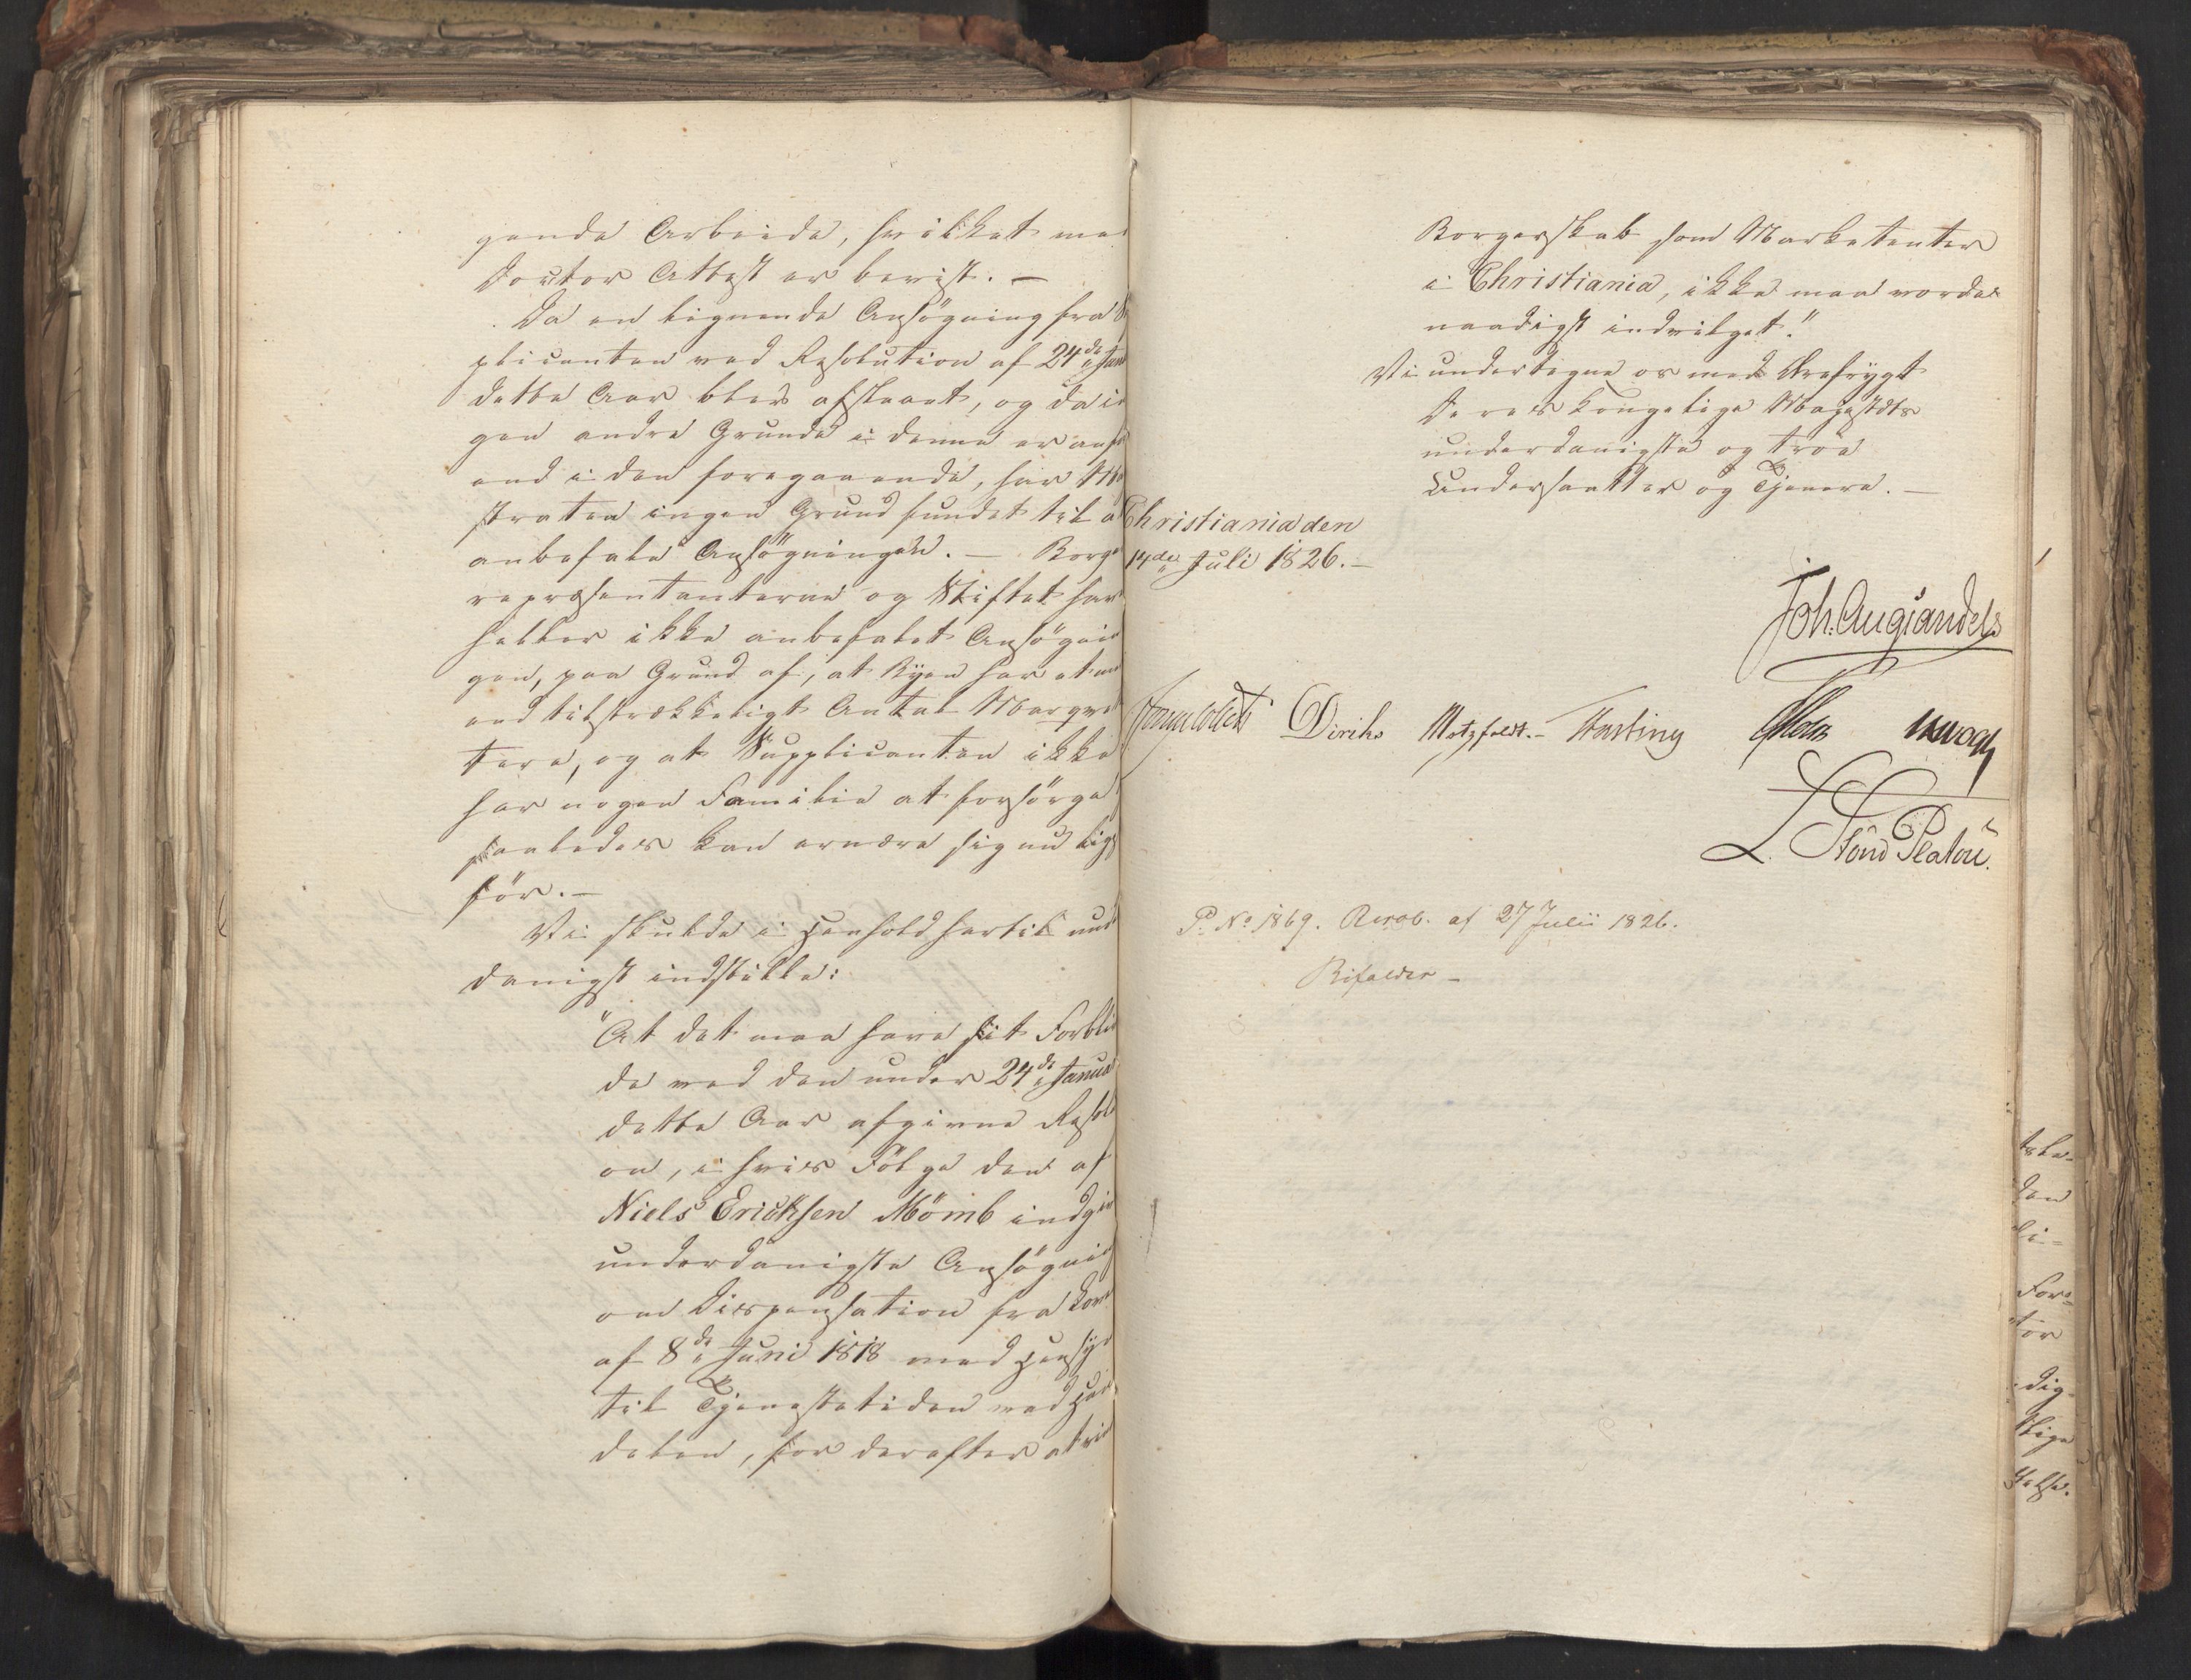 gende Arbeide, hvilket med
Doctor Attest er bevist. —
Da en lignende Ansøgning fra
plicanten ved Resolution af 24de Janu
dette Aar blev afslaaet, og da in
gen andre Grunde i denne er anfø
end i den foregaaende, har Ma
straten ingen Grund fundet til a
anbefale Ansøgningen. — Borge
repræsentanterne og Stiftet har
heller ikke anbefalet Ansøgnin
gen, paa Grund af, at Byen har et me
end tilstrækkeligt Antal Marqve
tere, og at Supplicanten ikke
har nogen Familie at forsørge
saaledes kan ernære sig nu lige
før. —
Vi skulde i Henhold hertil und
danigst indstille:
"At det maa have sit Forbli
de ved den under 24de Janua
dette Aar afgivne Resol
on, i hvis Følge den af
Niels Ericksen Mömb indgi
underdanigste Ansøgnin
om Dispensation fra Love
af 8de Juni 1818 med Hensyn
til Tjenestetiden ved Han
delen, for derefter at vi
Borgerskab som Marketenter
i Christiania, ikke maa vorde
naadigst indvilget."
Vi undertegne os med Ærefrygt
Deres Kongelige Majestæts
underdanigste og troe
Undersaatter og Tjenere. —
Christiania den
14de Juli 1826. —
Joh. Aug: Sandels
Diriks Motzfeldt. —
L. Stoud Platou
P. No 1869. Resol. af 27 Julii 1826.
Bifaldes —